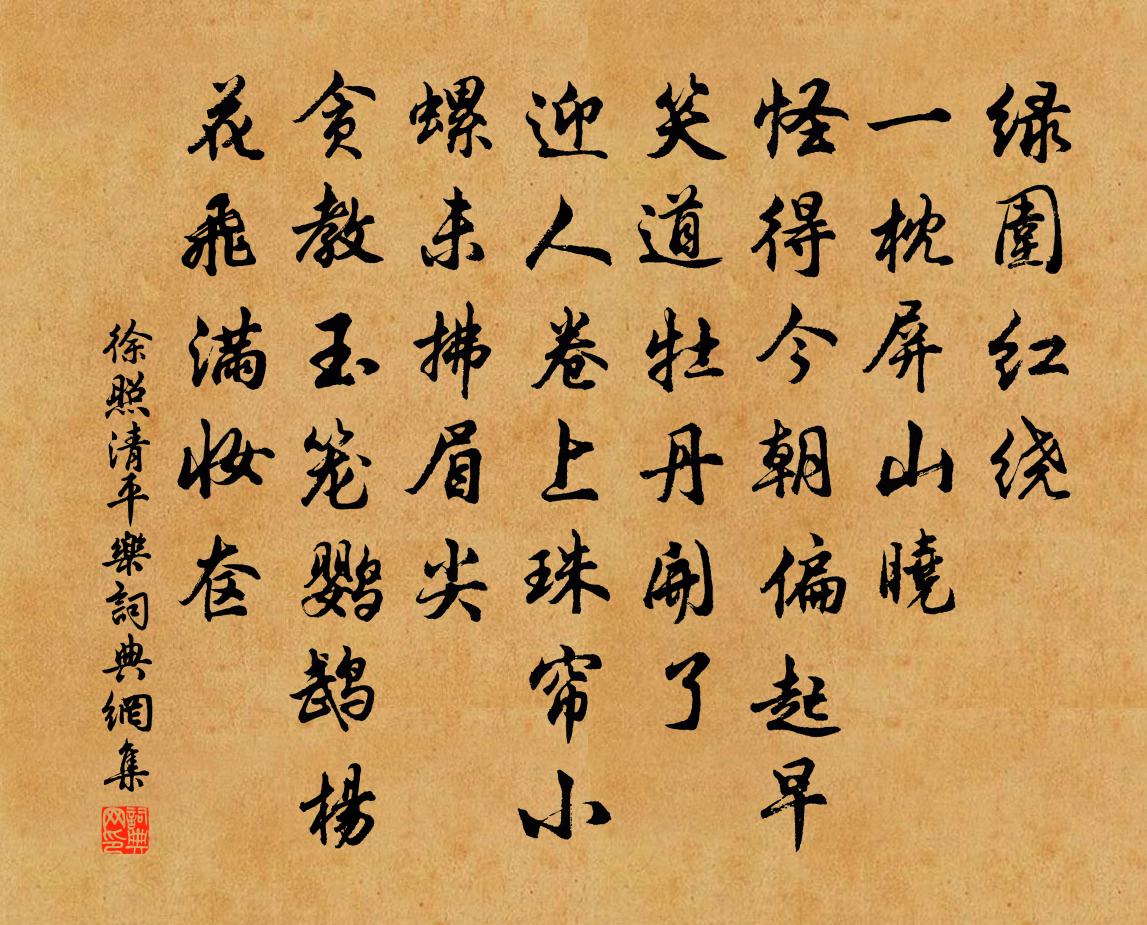 绿圍红绕
一枕屏山曉
怪得今朝偏起早
笑道牡丹開了
迎人卷上珠帘小
螺未拂眉尖
贪教玉笼鹦鹉楊
花飛满妝奁
徐照清平樂詞典網集
詞典网印